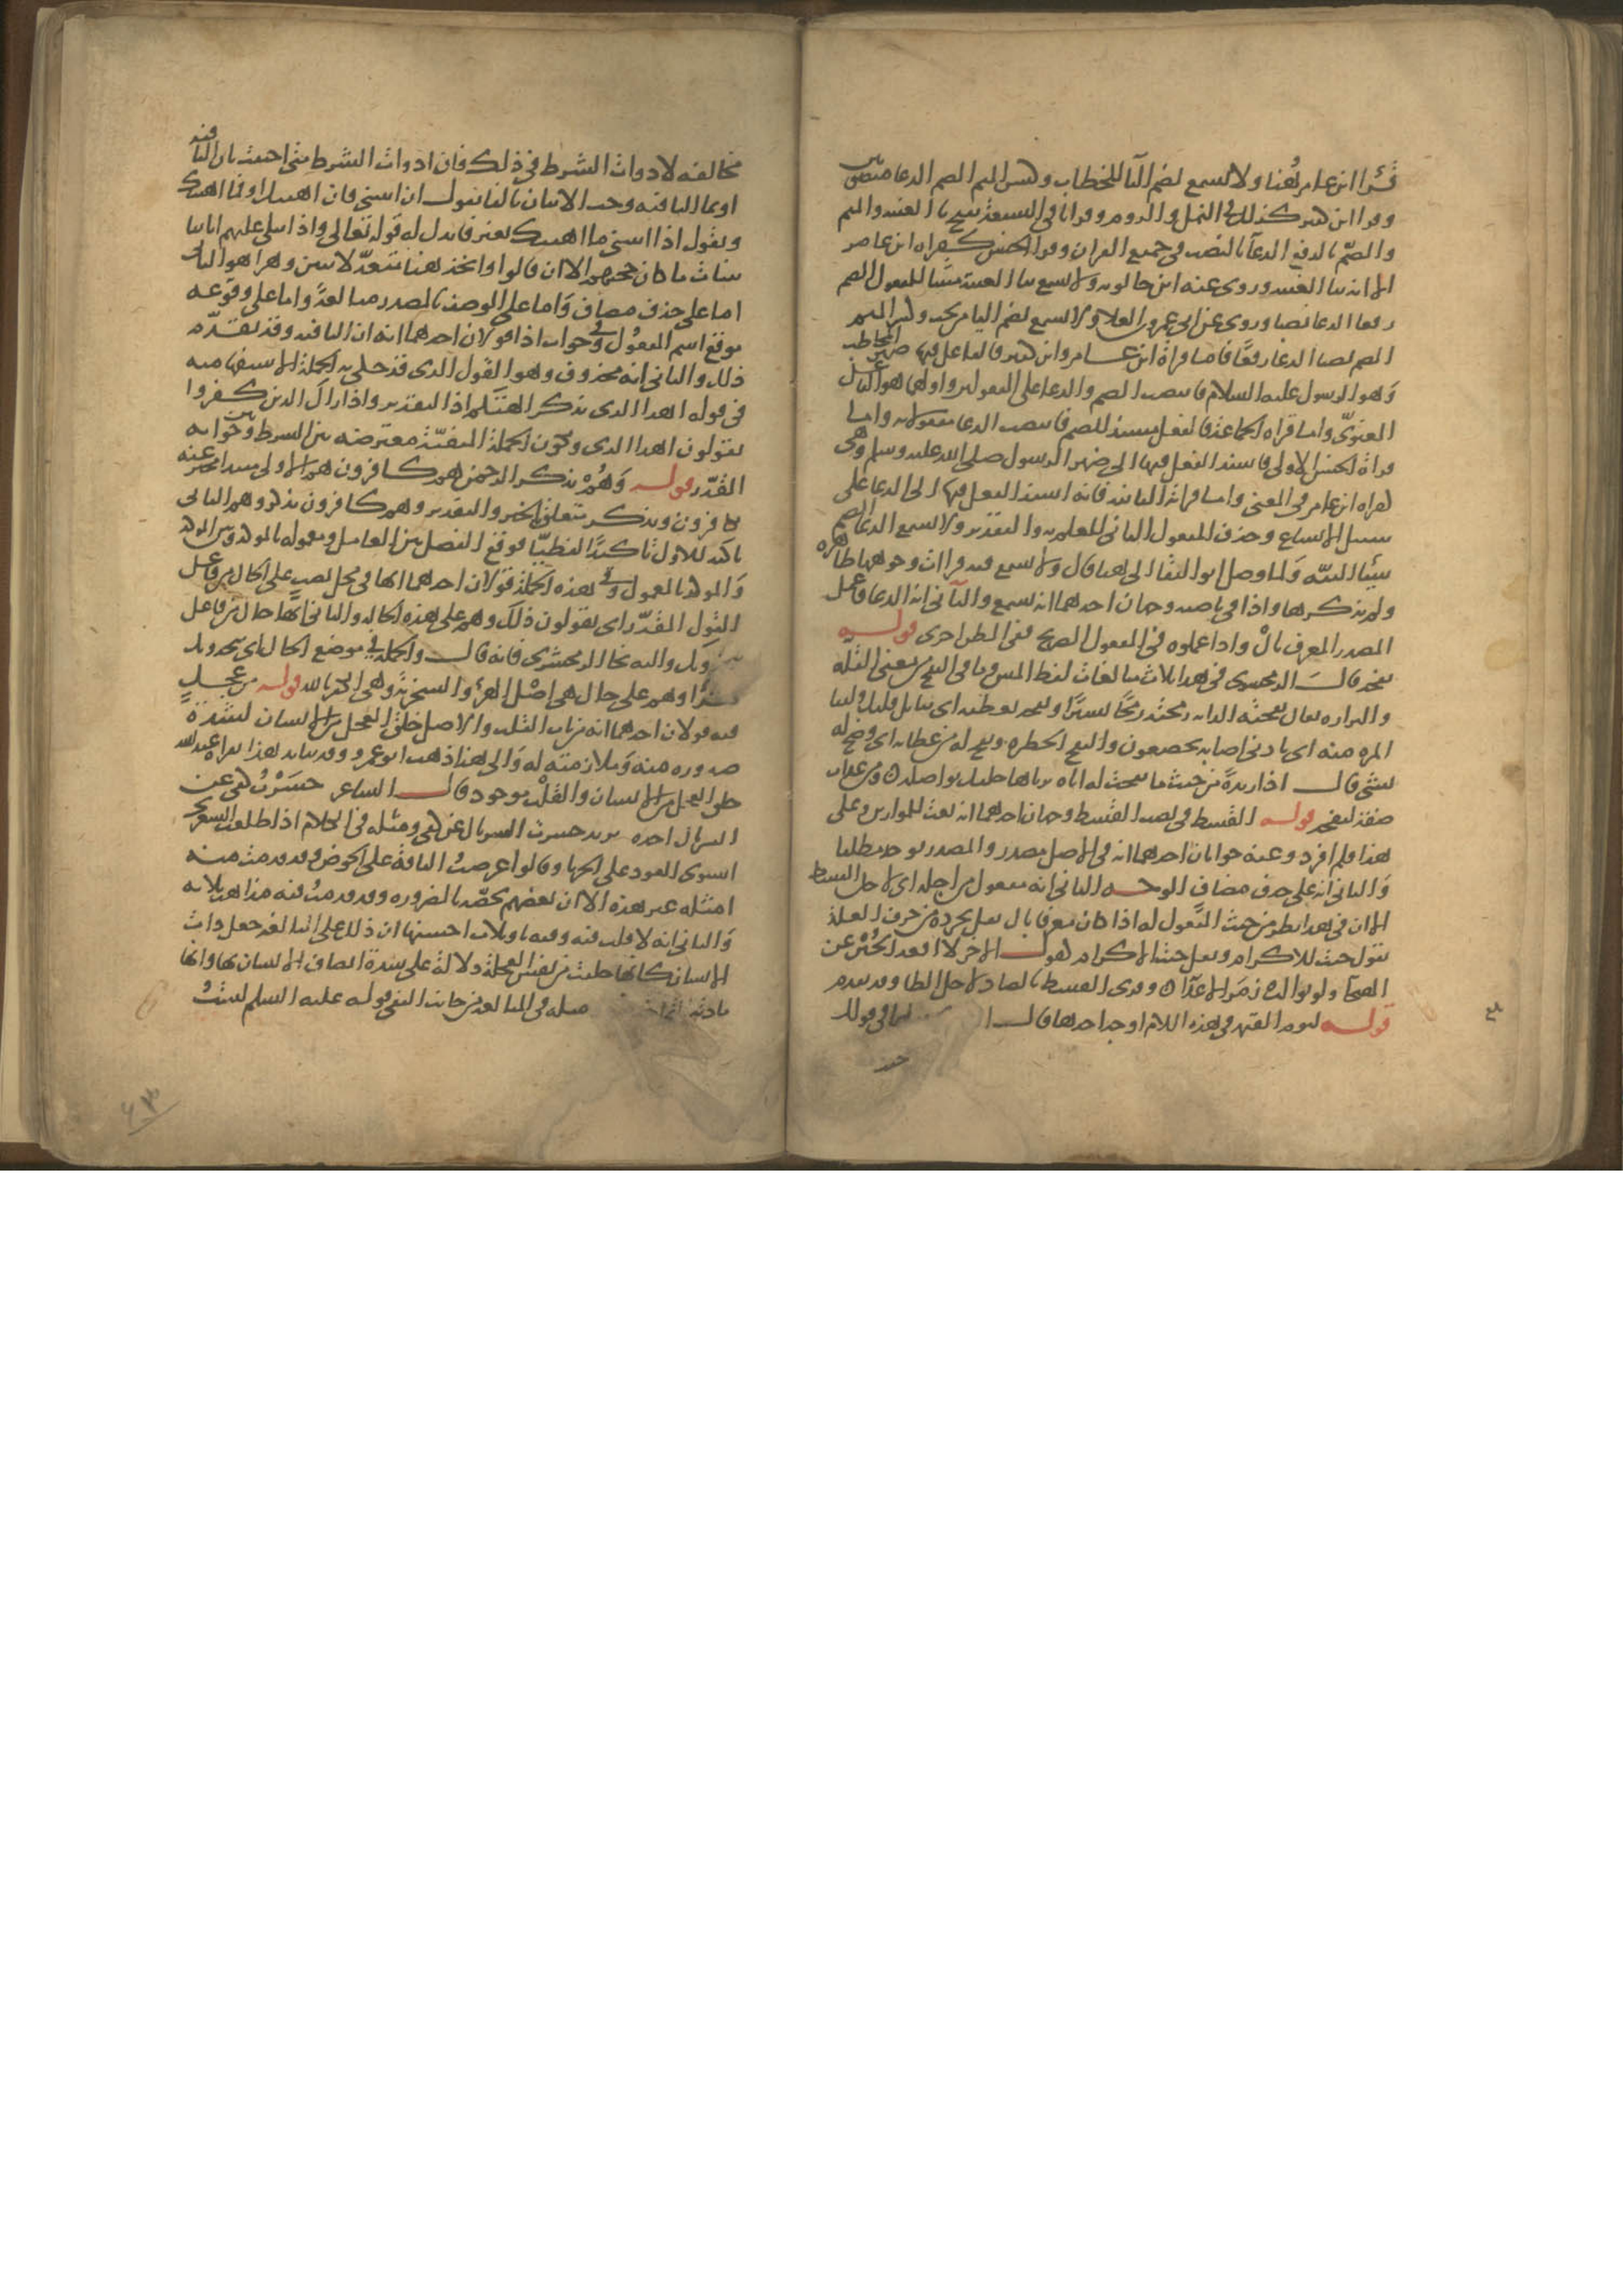 قرأ ابن عامر هنا ولا تسمع بضم التا للخطاب وكسر الميم الصم الدعا منصوبين
وقرا ابن كثير كذلك في النمل والروم وقرا باقي السبعة بفتح يا الغيبة والميم
والصم بالرفع الدعا بالنصب في جميع القران وقرا الحسن كقراه ابن عامر
الا انه بيا الغيبه وروى عنه ابن خالويه ولا يسمع بيا الغيبة مبنيا للمفعول الصم
رفعا الدعا نصبا وروى عن ابى عمرو بن العلا ولا يسمع بضم اليا من تحت وكسر الميم
الصم نصبا الدعا رفعًا فاما قراة ابن عامر وابن كثير فالفاعل فيها ضمير المخاطب
وهو الرسول عليه السلام فانتصب الصم والدعا على المفعولين واولهما هو الفاعل
المعنوي واما قراه الجماعة فالفعل مسند للصم فانتصب الدعا مفعولا به واما
قراة الحسن الاولى فاسند الفعل فيها الى ضمير الرسول صلى الله عليه وسلم وهي
كقراه ابن عامر في المعنى واما قراته الثانيه فانه اسند الفعل فيها الى الدعا على
سبيل الاتساع وحذف المفعول الثاني للعلم به والتقدير ولا يسمع الدعا الصم
شيئا البتّه ولما وصل ابو البقا الى هنا قال ولا يسمع فيه قراات وجوهها ظاهره
ولم يذكرها واذا في ناصبه وجهان احدهما انه يسمع والثاني انه الدعا فاعمل
المصدر المعرف بال واذا اعملوه في المفعول الصريح ففي الظرف احرى قوله
نفحه قال الزمخشري في هذا ثلاث مبالغات لفظ المس وما في النفح من معنى القله
والنزاره يقال نفحته الدابه رمحته رمحًا يسيرًا ونفحه بعطيه اى بنايل قليل ولبنا
المره منه اى بادنى اصابه يخضعون والنفح الخطره ونفح له من عطايه اى رضخ له
بشي قال اذا ريدة من حيث ما نفحت له اتاه برياها خليل يواصله ومن عذاب
صفة لنفحه قوله القسط في نصب القسط وجهان احدهما انه نعت للموازين وعلى
هذا فلم افرد وعنه جوابان احدهما انه في الاصل مصدر والمصدر يوحد مطلقا
والثاني انه على حذف مضاف الوجه الثاني انه مفعول من اجله اى لاجل القسط
الا ان في هذا نظر من حيث المفعول له اذا كان معرفا بال يقل تجرده من حرف العلة
تقول جيت للاكرام ويقل جيت الاكرام كقول الاخر لا اقعد الجبن عن
الهيجا ولو توالت زمر الاعدا وقرى القصط بالصاد لاجل الطا وقد تقدم
قوله ليوم القيمه في هذه اللام اوجه احدها قال مثلها في قولك
مخالفه لادوات الشرط في ذلك فان ادوات الشرط متى اجيبت بان النافيه
او بما النافيه وجب الاتيان بالفا تقول ان اتيتني فان اهينك او فما اهينك
وتقول اذا اتيتني ما اهينك بغير فا يدل له قوله تعالى واذا تتلى عليهم اياتنا
بينات ما كان حجتهم الا ان قالوا واتخذ هنا متعدّ لاثنين وهزوا هو الثاني
اما على حذف مضاف واما على الوصف بالمصدر مبالغةً واما على وقوعه
موقع اسم المفعول وفي جواب اذا قولان احدهما انه ان النافيه وقد تقدّم
ذلك والثاني انه محذوف وهو القول الذى قد حكى به الجملة الاستفهاميه
في قوله اهذا الذى يذكر الهتكم اذ التقدير واذا راك الذين كفروا
يقولون اهذا الذى وتكون الجملة المنفيّة معترضه بين الشرط وبين جوابه
المقدّر قوله وهم بذكر الرحمن هم كافرون هم الاولى مبتدا مخبر عنه
بكافرون وبذكر متعلق بالخبر والتقدير وهم كافرون بذكر وهم الثاني
تاكيد للاول تاكيدًا لفظيّا فوقع الفصل بين العامل ومعموله بالموكد وبين الموكد
والموكد بالمعمول وفي هذه الجملة قولان احدهما انها في محل نصب على الحال من فاعل
القول المقدّر اى يقولون ذلك وهم على هذه الحاله والثاني انها حال من فاعل
يتخذونك واليه نحا الزمخشرى فانه قال والجملة في موضع الحال اى يتخذونك
هزؤا وهم على حال هي اصل الهزؤ والسخرية وهي الكفر بالله قوله من عجل
فيه قولان احدهما انه من باب القلب والاصل خلق العجل من الانسان لشدة
صدوره منه وملازمته له والى هذا ذهب ابو عمرو وقد يتايد هذا بقراه عبد الله
خلق العجل من الانسان والقلب موجود قال الشاعر حسرت كفي عن
السربال اخذه يريد حسرت السربال عن كفي ومثله في الكلام اذا طلعت الشعرى
استوى العود على الحربا وقالوا عرضت الناقة على الحوض وقد قدمت منه
امثله غير هذه الا ان بعضهم يخصّه بالضروره وقد قدمت فيه مذاهب ثلاثه
والثاني انه لا قلب فيه وفيه تاويلات احسنها ان ذلك على المبالغه جعل ذات
الانسان كانها خلقت من نفس العجلة دلالة على شدة اتصاف الانسان بها وانها
مادته مثله في المبالغه من جانب النفي قوله عليه السلم لست
٤٣